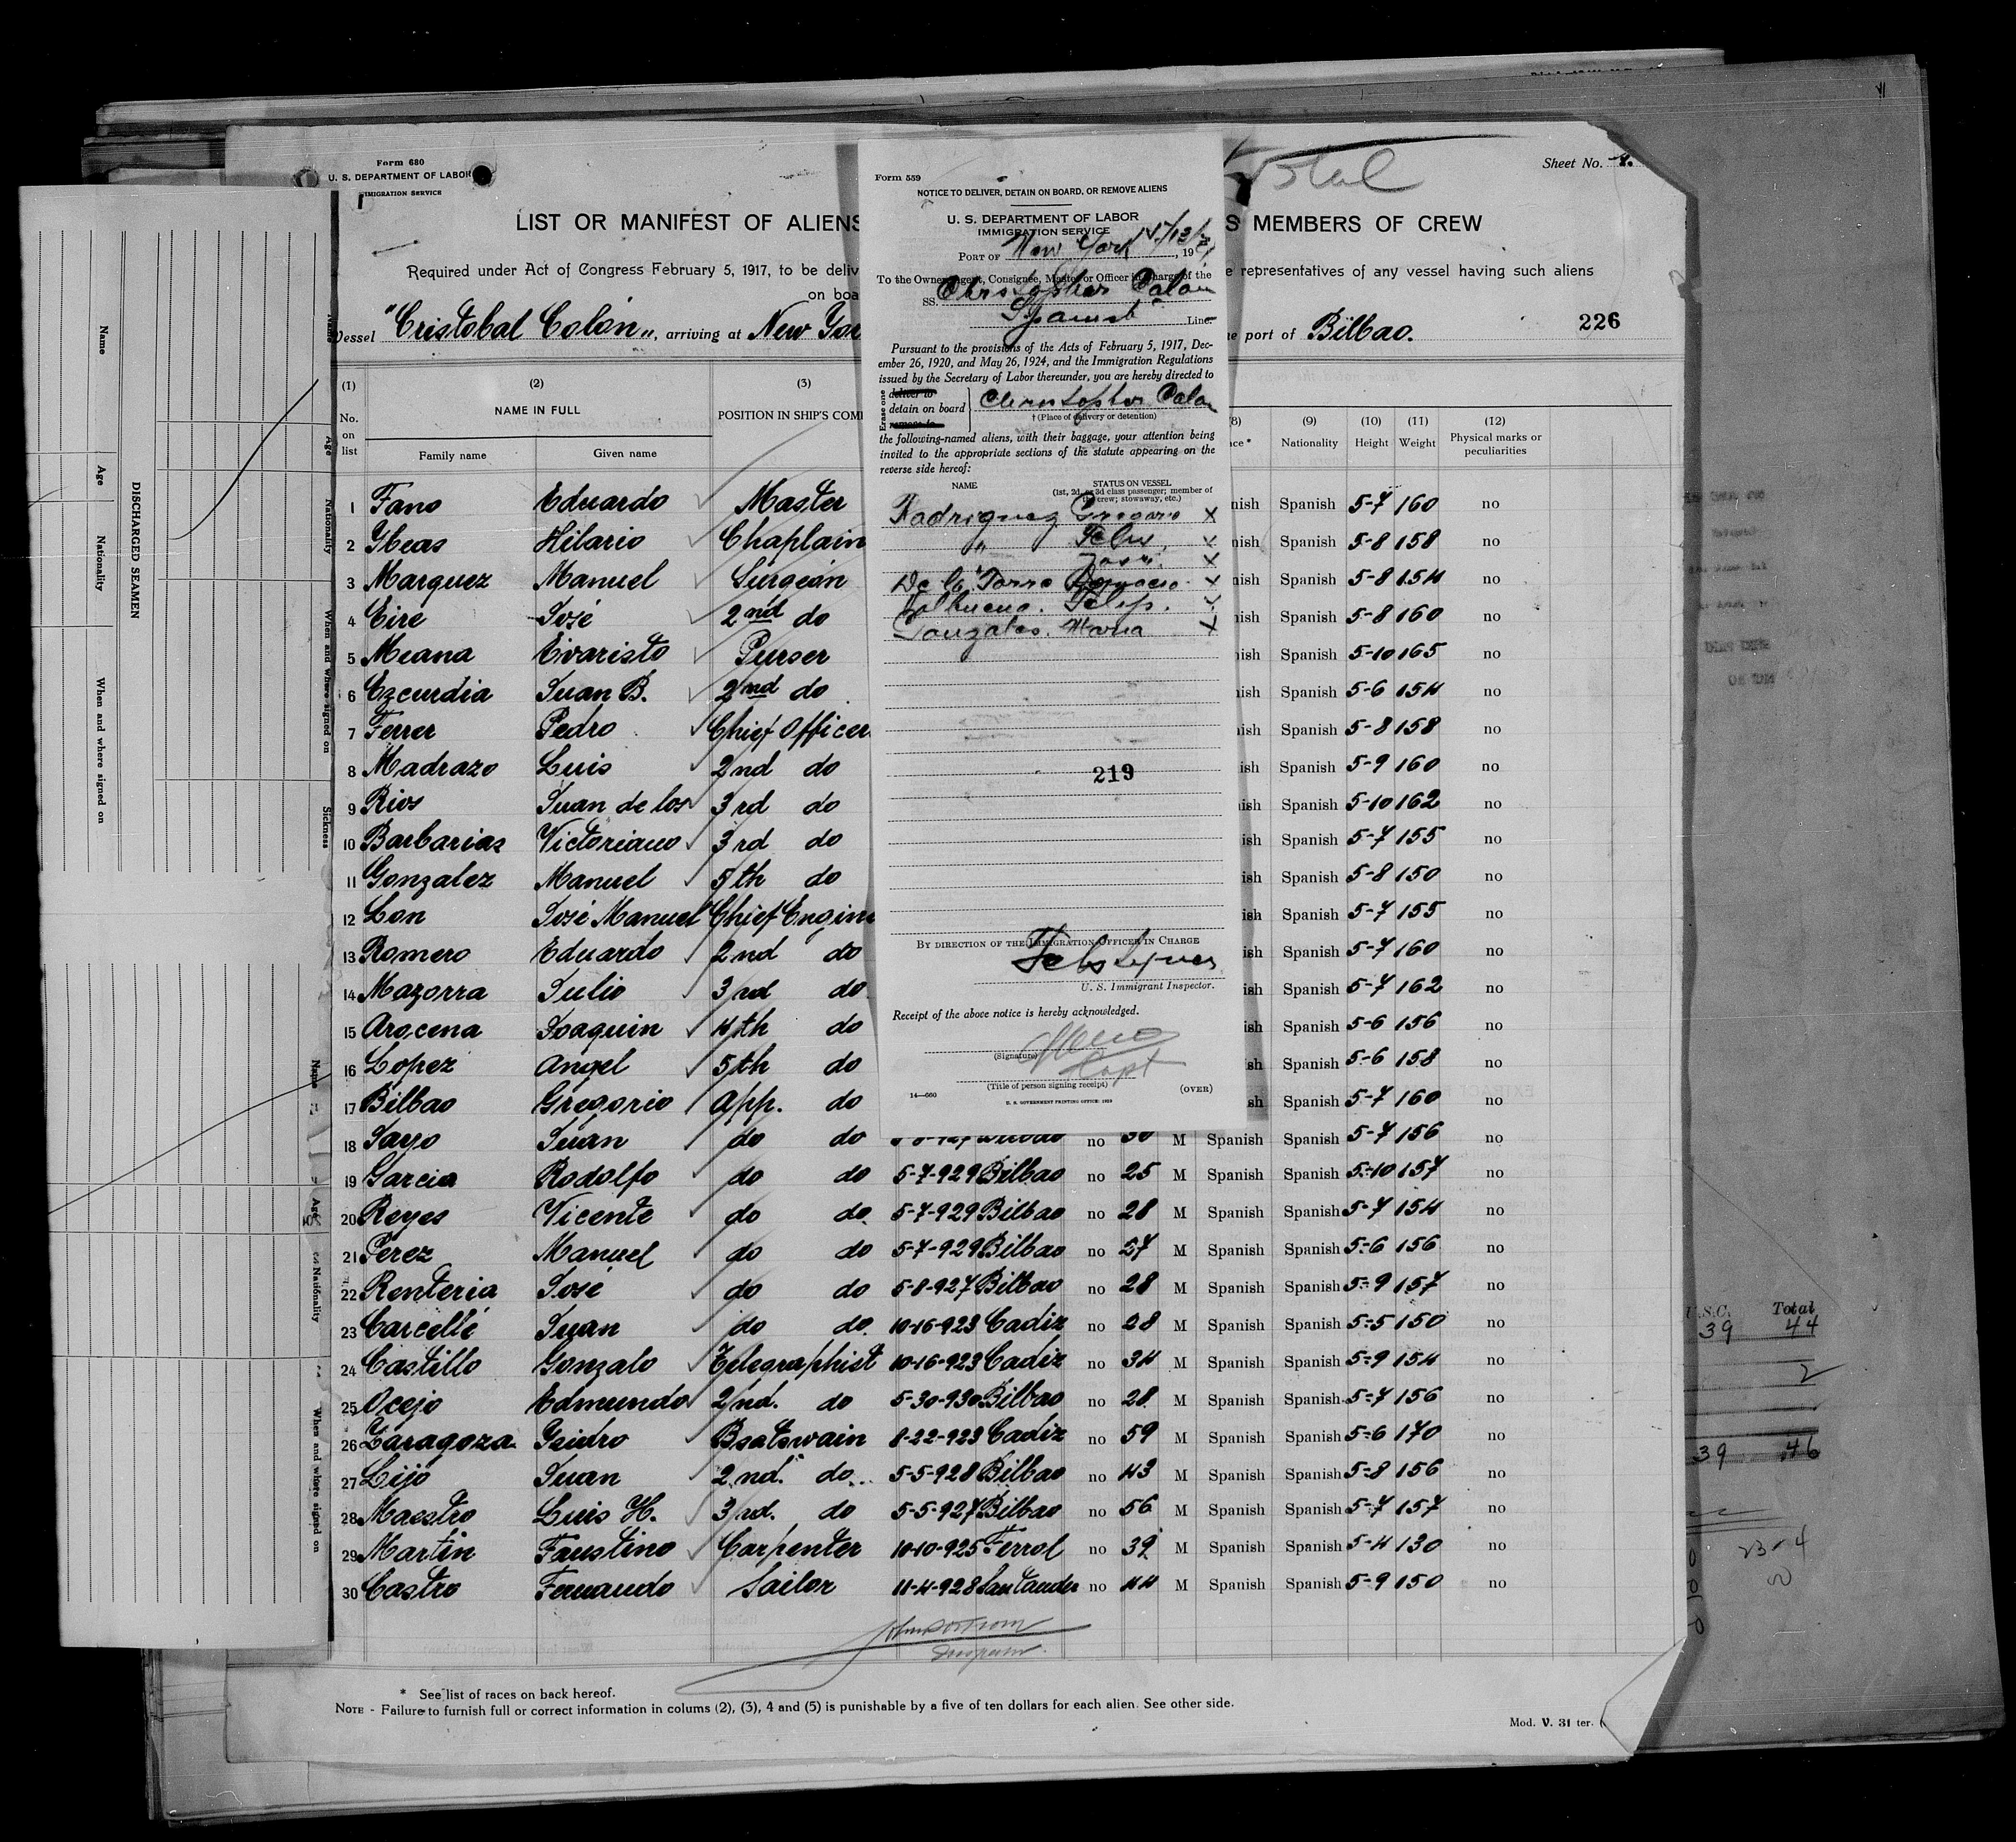 Form 680
U. S. DEPARTMENT OF LABOR
IMIGRATION SERVICE
Sheet No.
LIST OR MANIFEST OF ALIENS
S MEMBERS OF CREW
Required under Act of Congress February 5, 1917, to be deliv
e representatives of any vessel having such aliens
on boa
Vessel "Cristobal Colón", arriving at New Yor
e port of Bilbao.
226
(1) (2) (3)
No. on list
NAME IN FULL
POSITION IN SHIP'S COM
Family name Given name
(8) (9) (10) (11) (12)
ce* Nationality Height Weight Physical marks or peculiarities
1 Fano Eduardo Master nish Spanish 5-7 160 no
2 Ybeas Hilario Chaplain nish Spanish 5-8 158 no
3 Marquez Manuel Surgeán nish Spanish 5-8 154 no
4 Eire José 2nd do nish Spanish 5-8 160 no
5 Meana Evaristo Purser nish Spanish 5-10 165 no
6 Ezcurdia Juan B. 2nd do nish Spanish 5-6 154 no
7 Ferrer Pedro Chief Officer nish Spanish 5-8 158 no
8 Madrazo Luis 2nd do ish Spanish 5-9 160 no
9 Rios Juan de los 3rd do ish Spanish 5-10 162 no
10 Barbarias Victoriano 3rd do ish Spanish 5-7 155 no
11 Gonzalez Manuel 5th do ish Spanish 5-8 150 no
12 Lon José Manuel Chief Engine ish Spanish 5-7 155 no
13 Romero Eduardo 2nd do ish Spanish 5-7 160 no
14 Mazorra Julio 3rd do ish Spanish 5-7 162 no
15 Arocena Joaquin 4th do ish Spanish 5-6 156 no
16 Lopez Angel 5th do sh Spanish 5-6 158 no
17 Bilbao Gregorio App. do sh Spanish 5-7 160 no
18 Juan do do no 30 M Spanish Spanish 5-7 156 no
19 Garcia Rodolfo do do 5-7-929 Bilbao no 25 M Spanish Spanish 5-10 157 no
20 Reyes Vicente do do 5-7-929 Bilbao no 28 M Spanish Spanish 5-7 154 no
21 Perez Manuel do do 5-7-929 Bilbao no 27 M Spanish Spanish 5-6 156 no
22 Renteria José do do 5-8-927 Bilbao no 28 M Spanish Spanish 5-9 157 no
23 Carcellé Juan do do 10-16-923 Cadiz no 28 M Spanish Spanish 5-5 150 no
24 Castillo Gonzalo Telegraphist 10-16-923 Cadiz no 34 M Spanish Spanish 5-9 154 no
25 Ocejo Edmundo 2nd. do 5-30-930 Bilbao no 28 M Spanish Spanish 5-7 156 no
26 Zaragoza Ysidro Boatswain 8-22-923 Cadiz no 59 M Spanish Spanish 5-6 170 no
27 Lijó Juan 2nd. do 5-5-928 Bilbao no 43 M Spanish Spanish 5-8 156 no
28 Maestro Luis H. 3rd. do 5-5-927 Bilbao no 56 M Spanish Spanish 5-7 157 no
29 Martin Faustino Carpenter 10-10-925 Ferrol no 39 M Spanish Spanish 5-4 130 no
30 Castro Fernando Sailor 11-4-928 Santander no 44 M Spanish Spanish 5-9 150 no
* See list of races on back hereof.
NOTE - Failure to furnish full or correct information in colums (2), (3), 4 and (5) is punishable by a five of ten dollars for each alien. See other side.
Mod. V. 31 ter.
Form 559
NOTICE TO DELIVER, DETAIN ON BOARD, OR REMOVE ALIENS
U. S. DEPARTMENT OF LABOR
IMMIGRATION SERVICE
PORT OF New York , 19
To the Owner, Agent, Consignee, Master or Officer in Charge of the
SS. Christopher Colon
Spanish Line.
Pursuant to the provisions of the Acts of February 5, 1917, Dec-
ember 26, 1920, and May 26, 1924, and the Immigration Regulations
issued by the Secretary of Labor thereunder, you are hereby directed to
Erase one
deliver to
detain on board
remove to
Christopher Colon
† (Place of delivery or detention)
the following-named aliens, with their baggage, your attention being
invited to the appropriate sections of the statute appearing on the
reverse side hereof:
NAME STATUS ON VESSEL
(1st, 2d, or 3d class passenger; member of
the crew; stowaway, etc.)
Rodriguez Gregorio x
" x
x
De la Torre Ignacio x
Gonzales. Maria x
219
BY DIRECTION OF THE IMMIGRATION OFFICER IN CHARGE
U. S. Immigrant Inspector.
Receipt of the above notice is hereby acknowledged.
(Signature)
Capt
(Title of person signing receipt)
(OVER)
14—660
U. S. GOVERNMENT PRINTING OFFICE: 1929
DISCHARGED SEAMEN
Name Age Nationality When and where signed on
Name Age Nationality When and where signed on Sickness
Name Age Nationality When and where signed on
U.S.C. Total
39 44
2
39 46